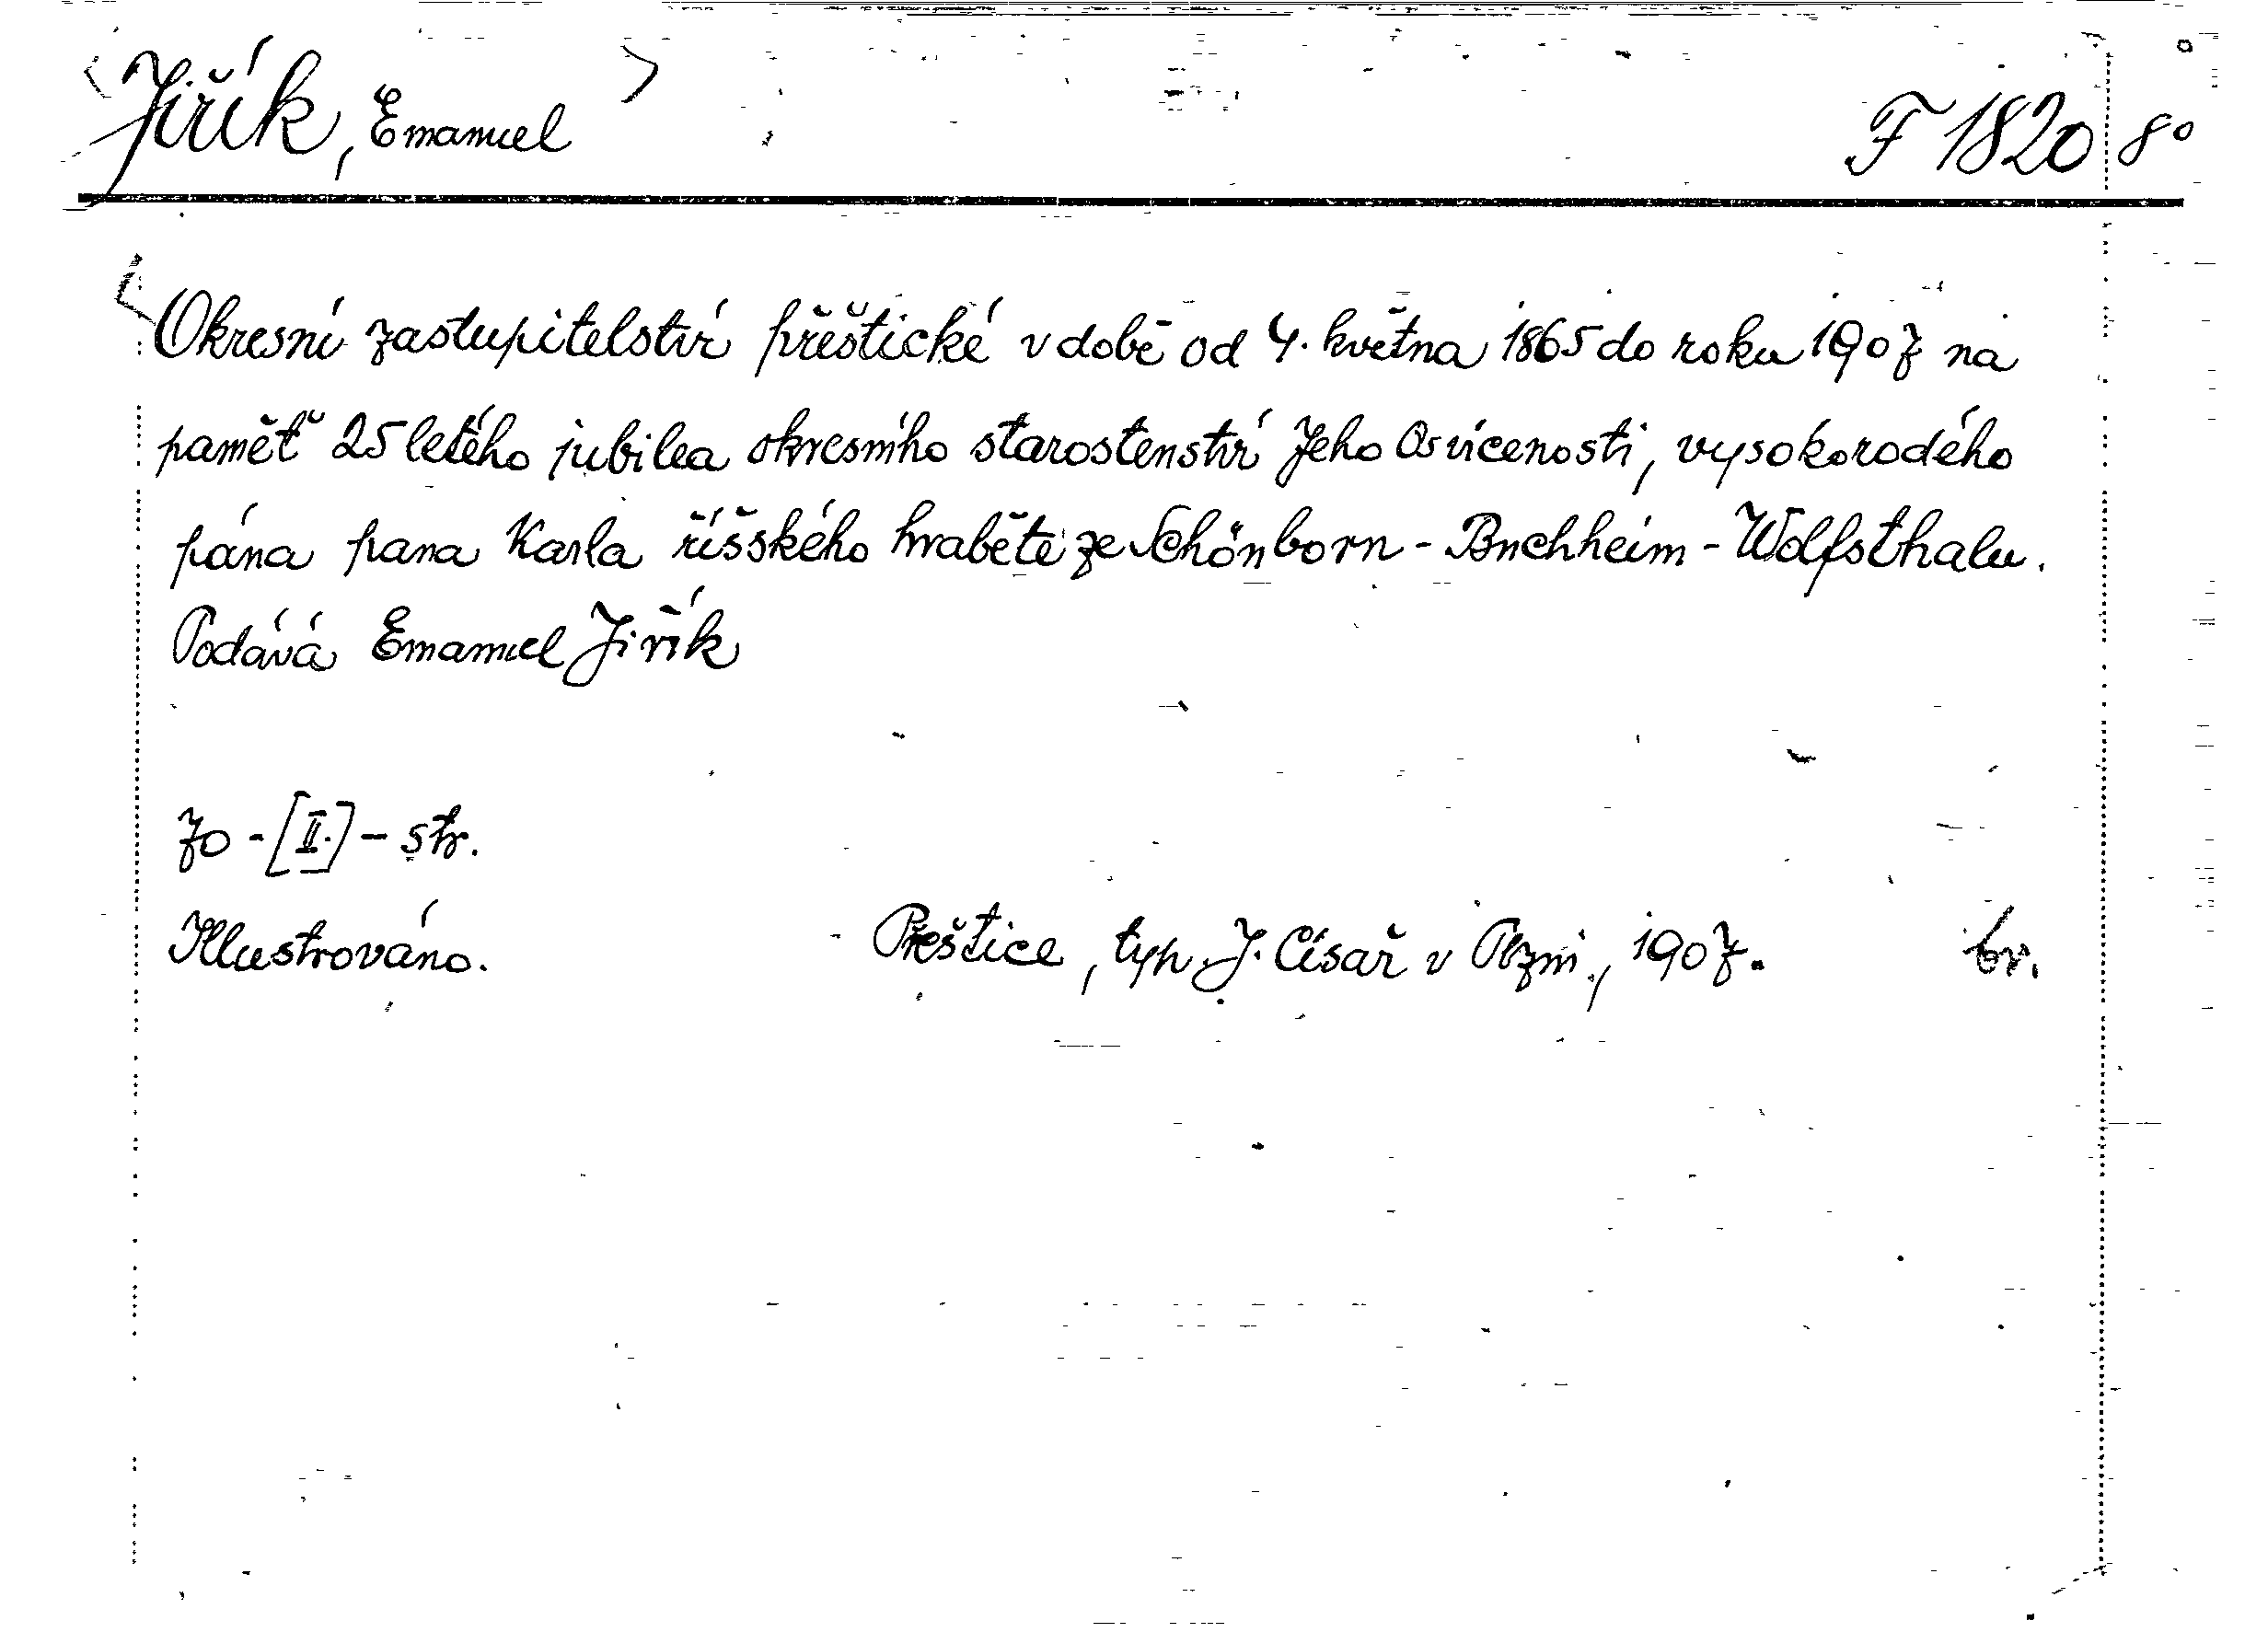 Jiřík, Emanuel F 1820 8°
Okresní zastupitelství přeštické v době od 4. května 1865 do roku 1907 na
paměť 25 letého jubilea okresního starostenství Jeho Osvícenosti, vysokorodého
pána pana Karla říšského hraběte ze Schönborn - Buchheim - Wolfsthalu.
Podává Emanuel Jiřík
70 - [II.] - str.
Illustrováno. Přeštice, typ. J. Císař v Plzni, 1907. br.